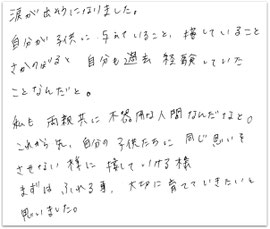 涙が出そうになりました。
自分が子供に与えていること、接していること
さかのぼると 自分も過去 経験していた
ことなんだと。
私も 両親共に不器用な人間なんだなと。
これから先、自分の子供たちに 同じ思いを
させない様に 接していける様
まずは ふれる事、大切に 育てていきたいと
思いました。